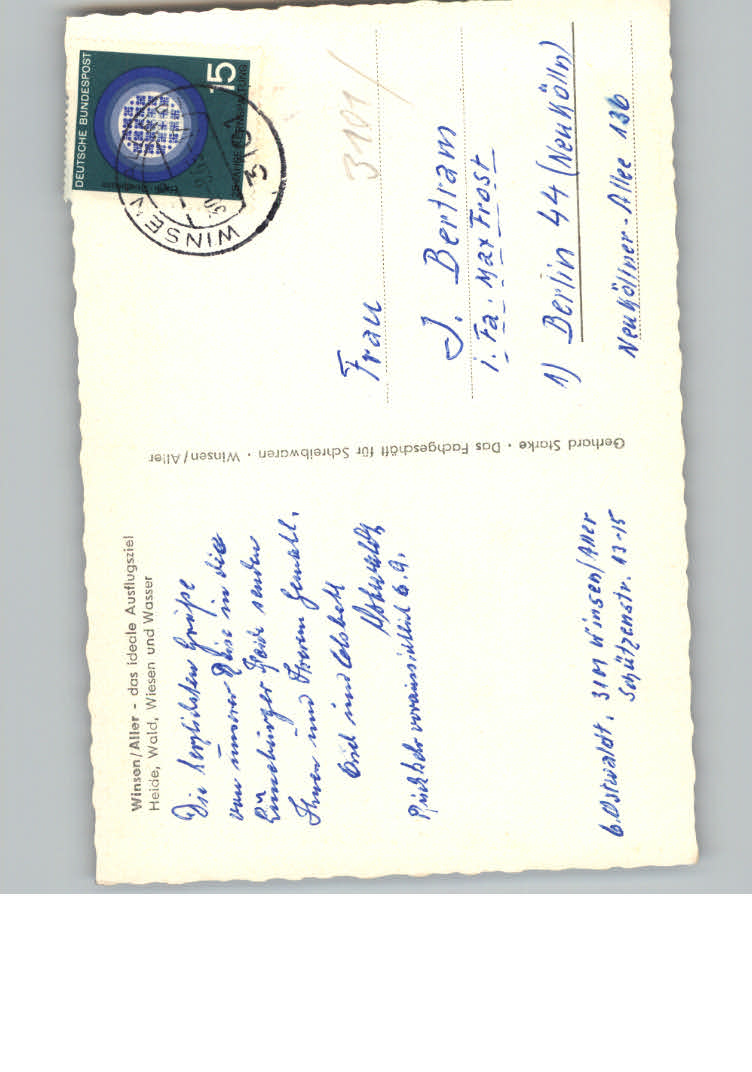 Winsen/Aller - das ideale Ausflugsziel
Heide, Wald, Wiesen und Wasser
Die herzlichsten Grüße
von unserer Reise in die
Lüneburger Heide senden
Ihnen und Ihrem Gemahl.
und Elsbeth
Ostwaldt
Rückkehr voraussichtlich 6.9.
G. Ostwaldt, 31M Winsen/Aller
Schützenstr. 13-15
Gerhard Starke · Das Fachgeschäft für Schreibwaren · Winsen/Aller
DEUTSCHE BUNDESPOST
15
WINSEN
3101
3101
Frau
J. Bertram
i. Fa. Max Frost
1) Berlin 44 (Neukölln)
Neuköllner-Allee 136